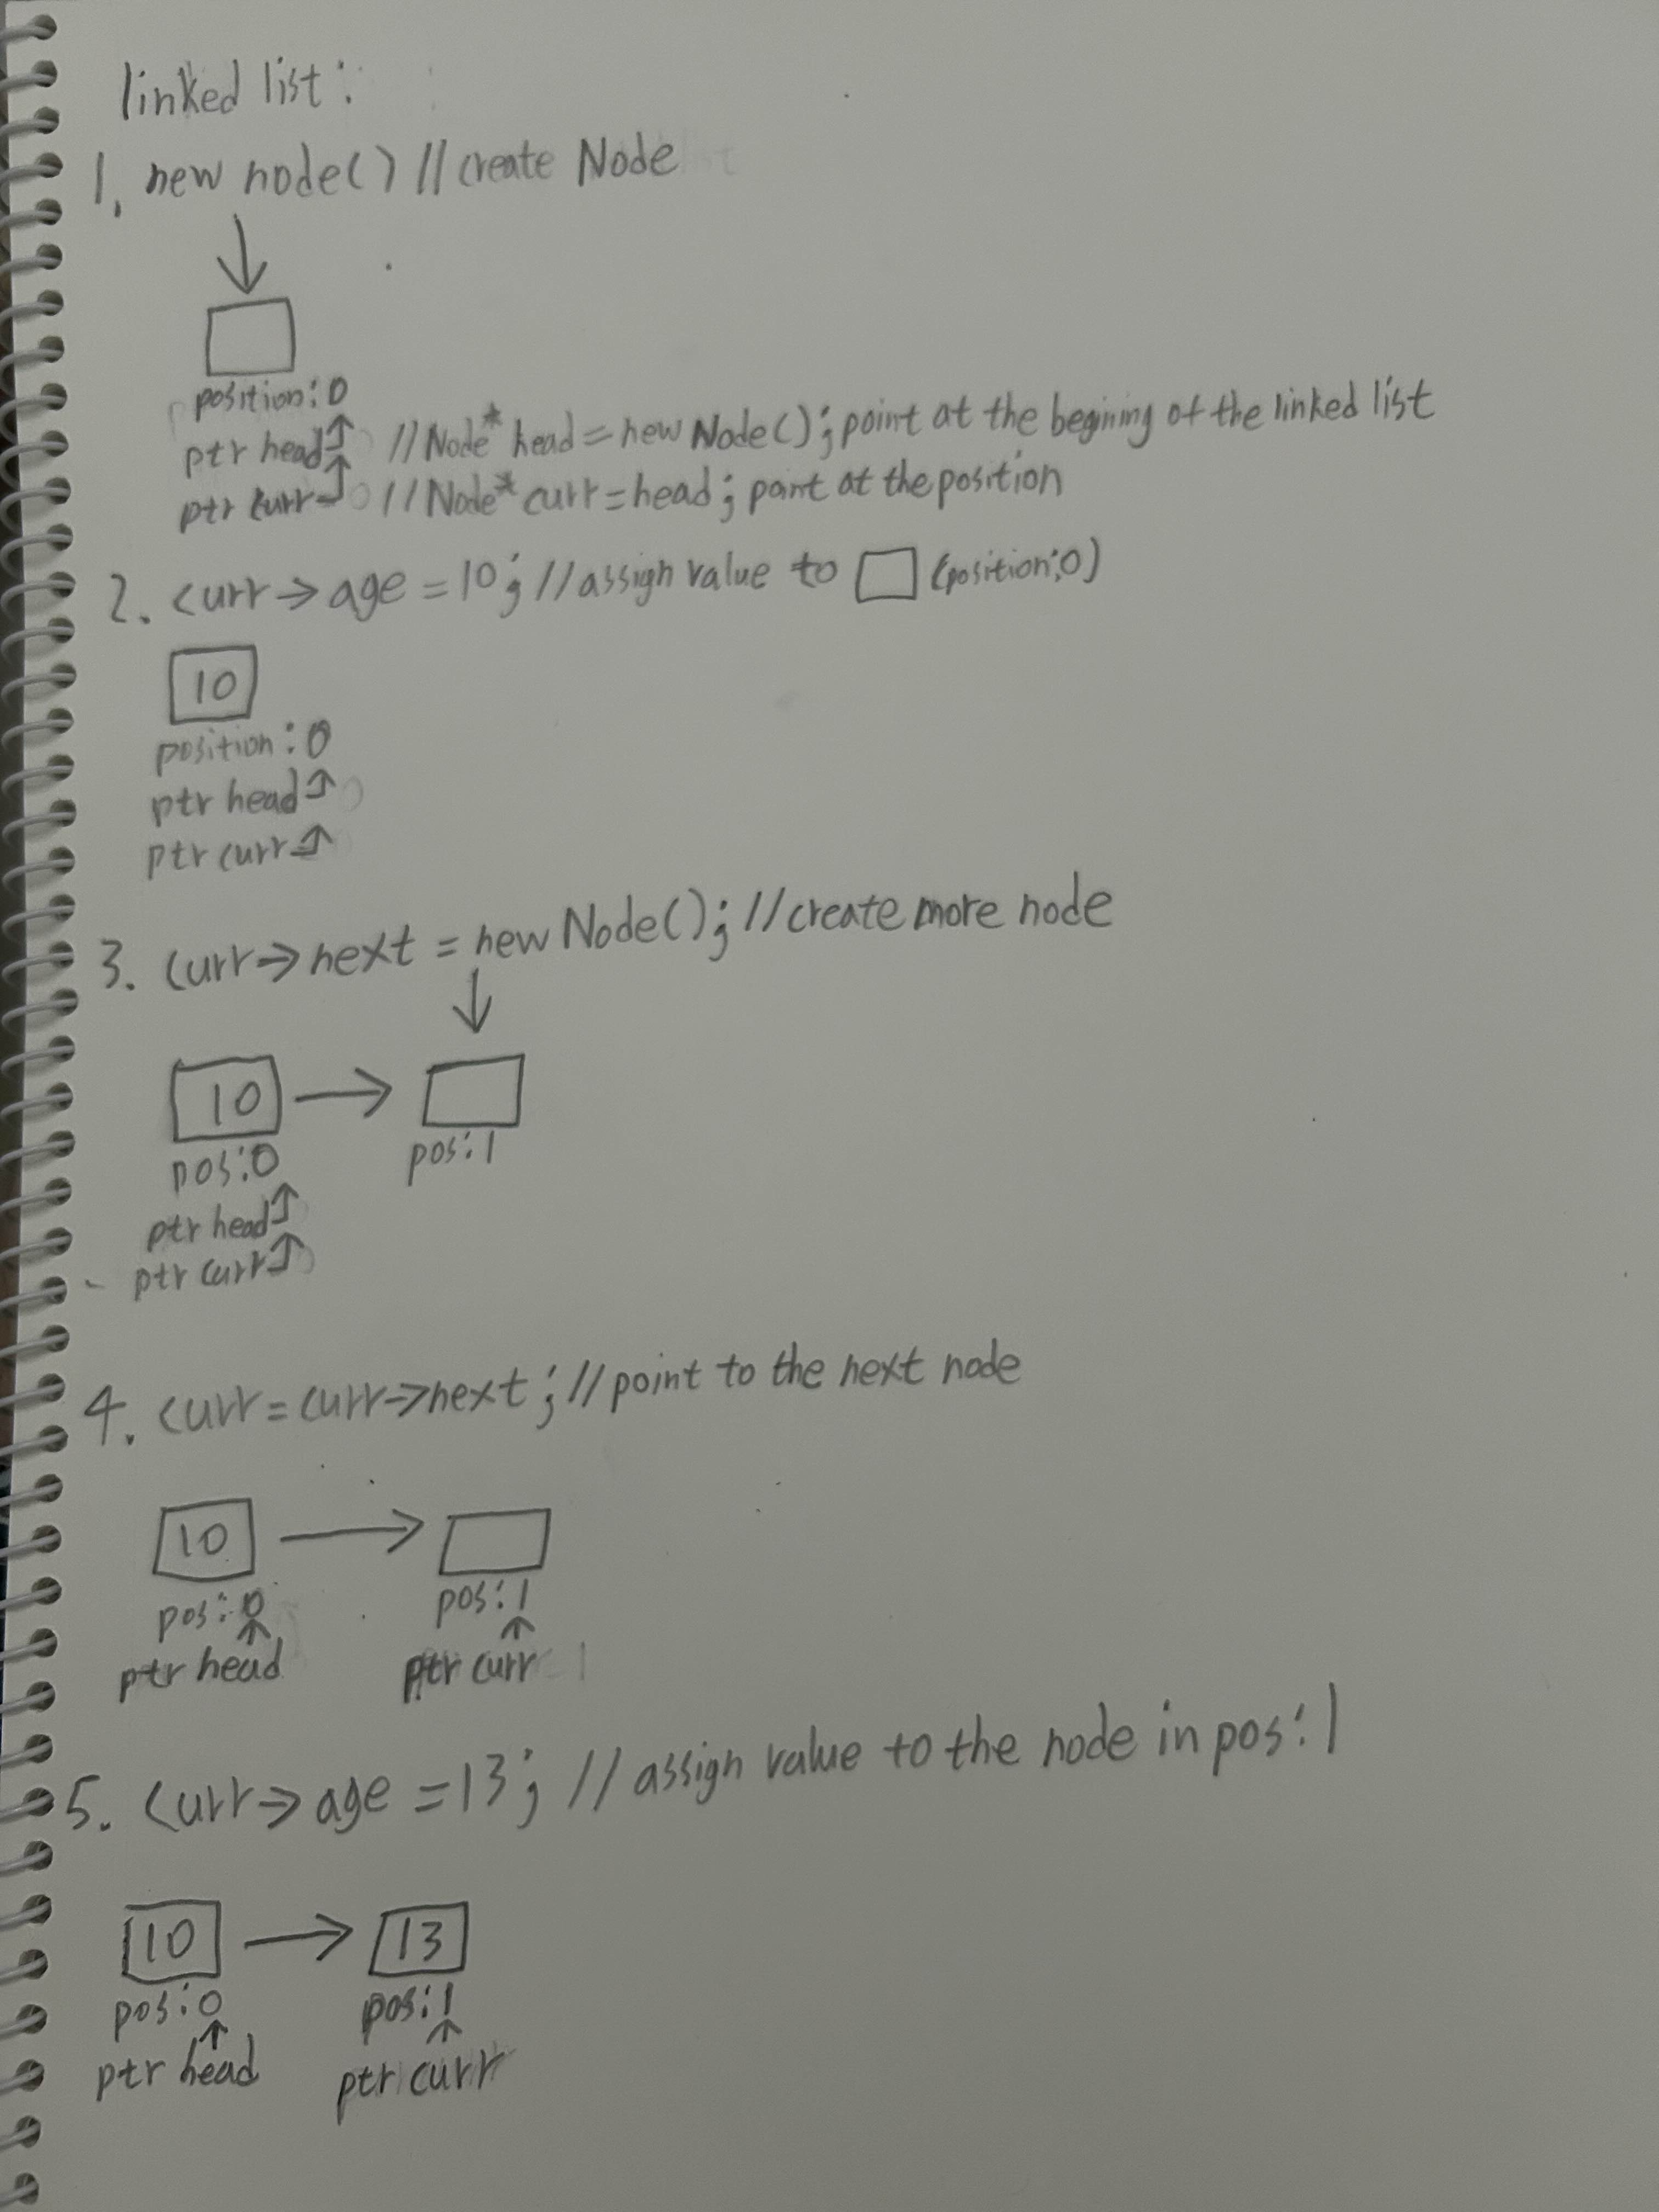 linked list:
1. new node() // create Node
position: 0
ptr head↑ // Node* head = new Node(); point at the begining of the linked list
ptr curr↑ // Node* curr = head; point at the position
2. curr→age = 10; // assign value to □ (position:0)
10
position: 0
ptr head↑
ptr curr↑
3. curr→next = new Node(); // create more node
10 →
pos:0 pos:1
ptr head↑
ptr curr↑
4. curr = curr→next; // point to the next node
10 →
pos:0 pos:1
ptr head ptr curr
5. curr→age = 13; // assign value to the node in pos:1
10 → 13
pos:0 pos:1
ptr head ptr curr